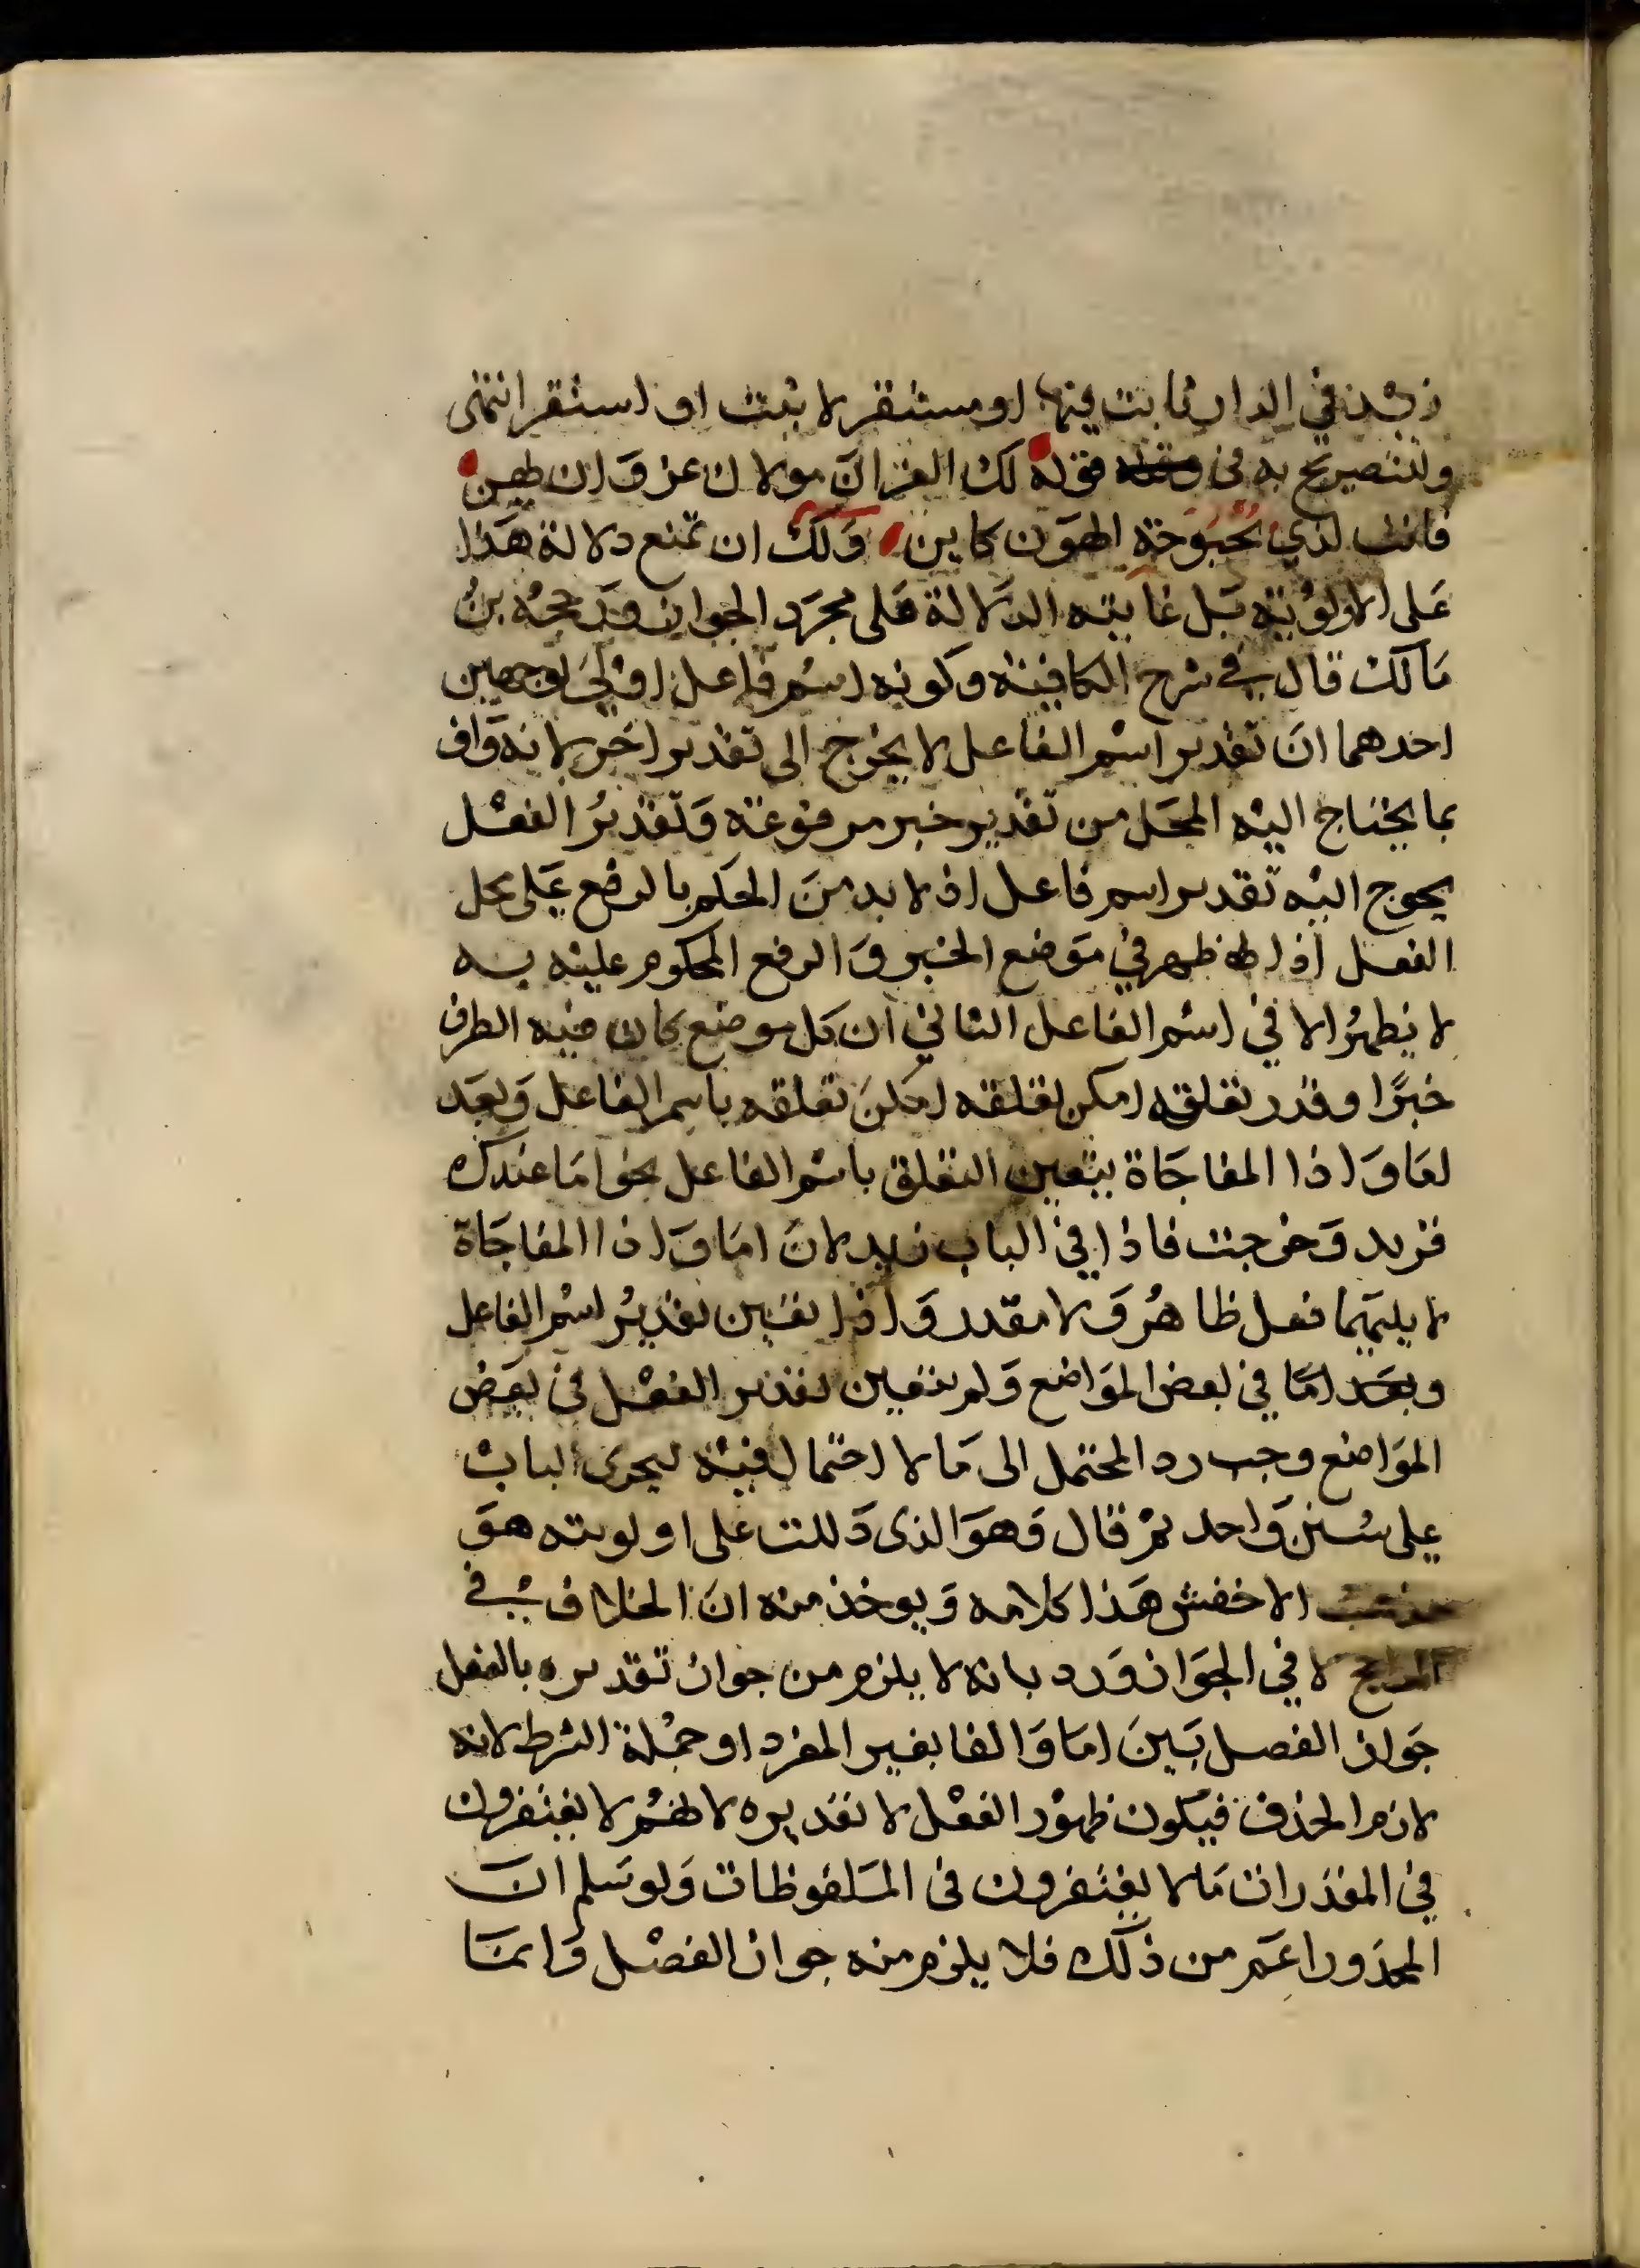 زيد في الدار ثابت فيها او مستقر لا ثبت او استقر انتهى
وللتصريح به في قوله لك العز ان مولاك عز وان يهن
فانت لدي بحبوحة الهون كاين ولك ان تمنع دلالة هذا
على الاولوية بل غايته الدلالة على مجرد الجواز ورجحه بن
مالك قال في شرح الكافية وكونه اسم فاعل اولى لوجهين
احدهما ان تقدير اسم الفاعل لا يحوج الى تقدير اخر لانه واف
بما يحتاج اليه المحل من تقدير خبر مرفوعة وتقدير الفعل
يحوج اليه تقدير اسم فاعل اذ لا بد من الحكم بالرفع على محل
الفعل اذا ظهر في موضع الخبر والرفع المحكوم عليه به
لا يظهر الا في اسم الفاعل الثاني ان كل موضع كان فيه الظرف
خبرًا وقدر تعلقه امكن لقلقه امكن تعلقه باسم الفاعل وبعد
لعا واذا المفاجاة يتعين التعلق باسم الفاعل نحو اما عندك
فزيد وخرجت فاذا في الباب زيد لان اما واذا المفاجاة
لا يليهما فعل ظاهر ولا مقدر واذا تعين تقدير اسم الفاعل
وبعد اما في بعض المواضع ولم يتعين تقدير الفعل في بعض
المواضع وجب رد المحتمل الى ما لا احتمال فيه ليجرى الباب
على سنن واحد ثم قال وهو الذى دللت على اولويته هو
مذهب الاخفش هذا كلامه ويوخذ منه ان الخلاف في
الراجح لا في الجواز ورد بانه لا يلزم من جواز تقديره بالفعل
جواز الفصل بين اما والفا بغير المفرد او جملة الشرط لانه
لازم الحذف فيكون ظهور الفعل لا تقديره لانهم لا يغتفرون
في المقدرات ما لا يغتفرون في الملفوظات ولو سلم ان
المحذور اعم من ذلك فلا يلزم منه جواز الفصل وانما